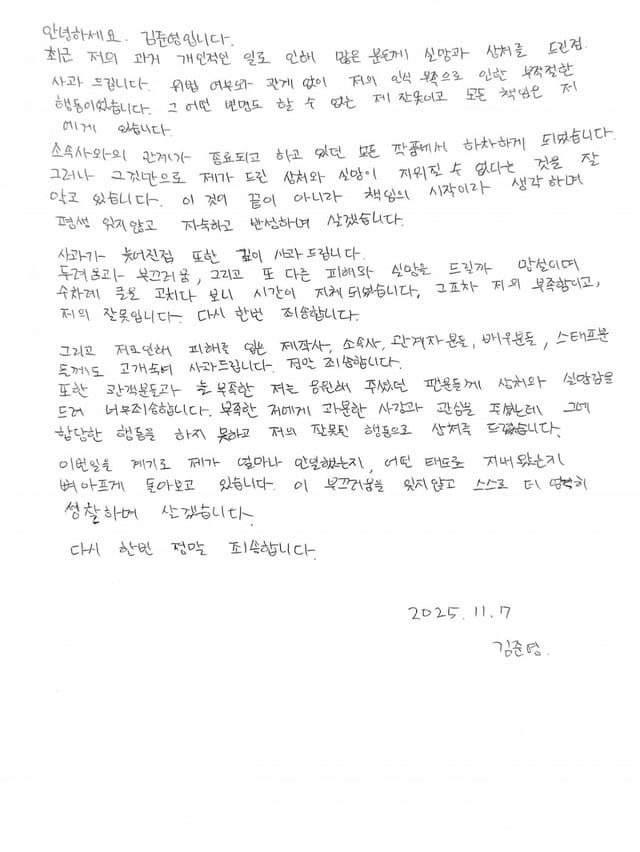 안녕하세요. 김준영입니다.
최근 저의 과거 개인적인 일로 인해 많은 분들께 실망과 상처를 드린점
사과 드립니다. 위법 여부와 관계 없이 저의 인식 부족으로 인한 부적절한
행동이었습니다. 그 어떤 변명도 할 수 없는 제 잘못이고 모든 책임은 제
에게 있습니다.
소속사와의 관계가 종료되고 하고 있던 모든 작품에서 하차하게 되었습니다.
그러나 그것만으로 제가 드린 상처와 실망이 지워질 수 없다는 것을 잘
알고 있습니다. 이 것이 끝이 아니라 책임의 시작이라 생각하며
평생 잊지않고 자숙하고 반성하며 살겠습니다.
사과가 늦어진점 또한 깊이 사과드립니다.
두려움과 부끄러움, 그리고 또 다른 피해와 실망을 드릴까 망설이며
수차례 글을 고치다 보니 시간이 지체 되었습니다. 그조차 저의 부족함이고,
저의 잘못입니다. 다시 한번 죄송합니다.
그리고 저로인해 피해를 입은 제작사, 소속사, 관계자분들, 배우분들, 스태프분
들께도 고개숙여 사과드립니다. 정말 죄송합니다.
또한 관객분들과 늘 부족한 저를 응원해 주셨던 팬분들께 상처와 실망감을
드려 너무죄송합니다. 부족한 저에게 과분한 사랑과 관심을 주셨는데 그에
합당한 행동을 하지 못하고 저의 잘못된 행동으로 상처를 드렸습니다.
이번일을 계기로 제가 얼마나 안일했는지, 어떤 태도로 지내왔는지
뼈아프게 돌아보고 있습니다. 이 부끄러움을 잊지않고 스스로 더 엄격히
성찰하며 살겠습니다.
다시 한번 정말 죄송합니다.
2025.11.7
김준영.